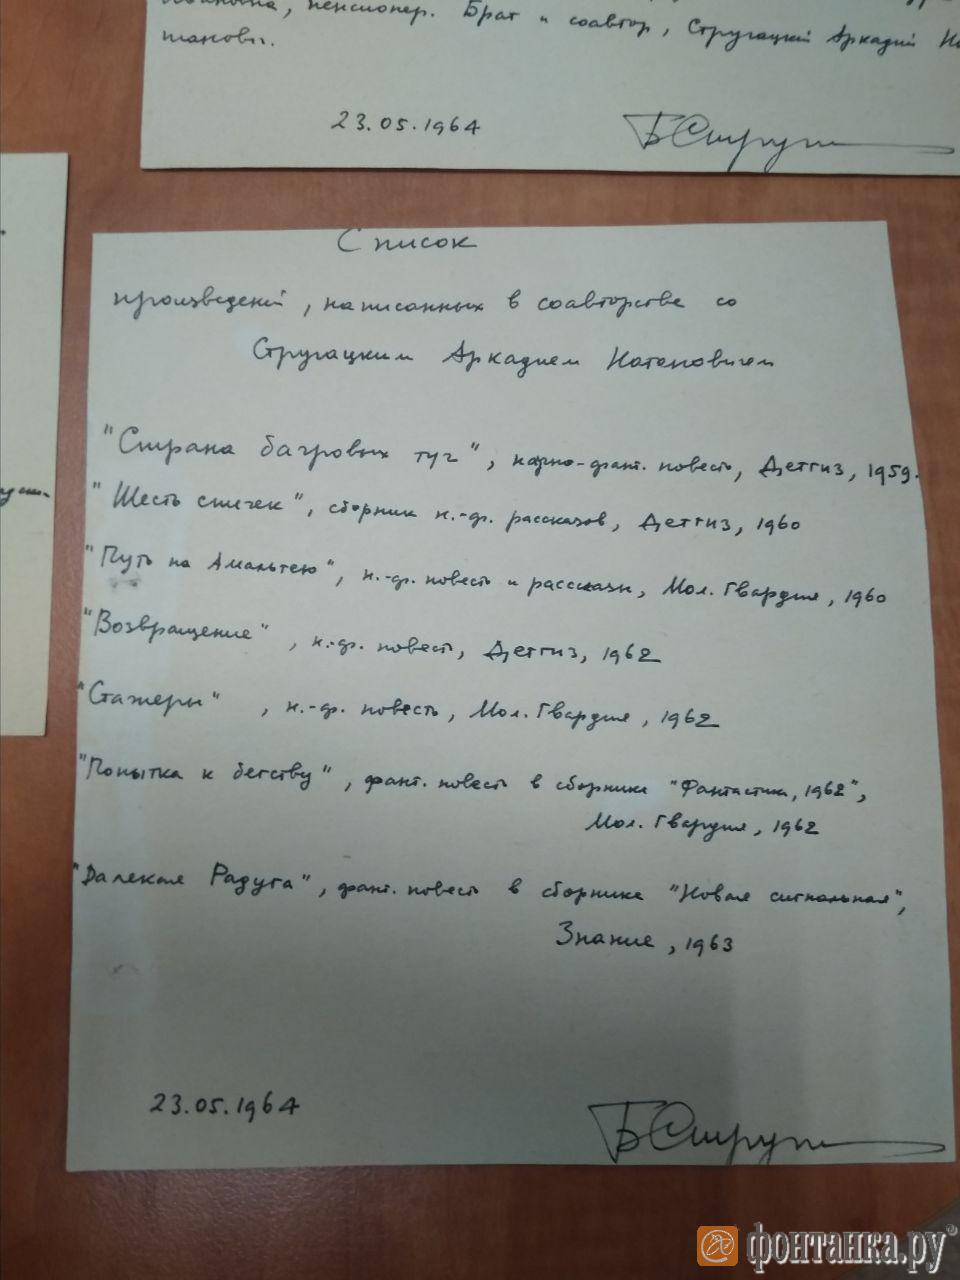 пенсионер. Брат и соавтор, Стругацкий Аркадий
23.05.1964
БСтруг
Список
произведений, написанных в соавторстве со
Стругацким Аркадием Натановичем
"Страна багровых туч", научно-фант. повесть, Детгиз, 1959.
"Шесть спичек", сборник н.-ф. рассказов, Детгиз, 1960
"Путь на Амальтею", н.-ф. повесть и рассказы, Мол. Гвардия, 1960
"Возвращение", н.-ф. повесть, Детгиз, 1962
"Стажеры", н.-ф. повесть, Мол. Гвардия, 1962
"Попытка к бегству", фант. повесть в сборнике "Фантастика, 1962",
Мол. Гвардия, 1962
"Далекая Радуга", фант. повесть в сборнике "Новая сигнальная",
Знание, 1963
23.05.1964
БСтруг
фонтанка.ру